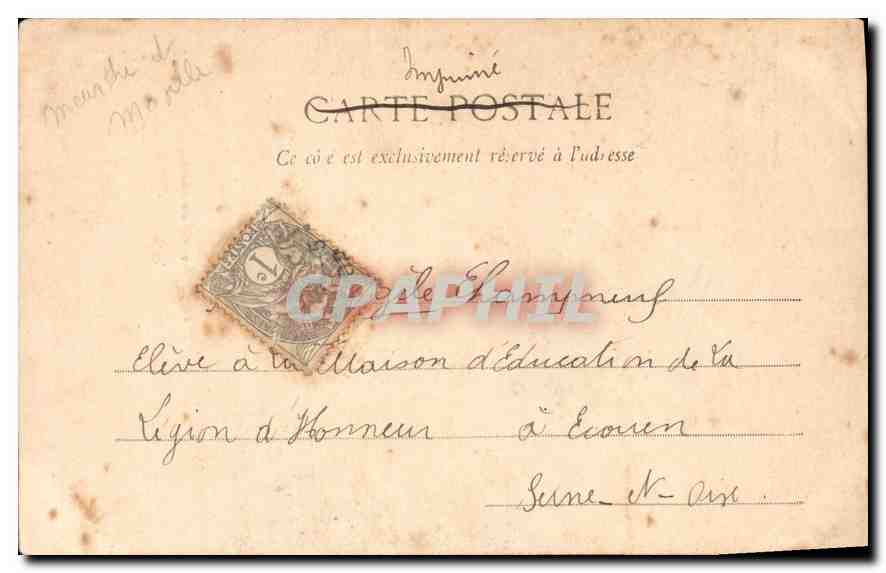 Meurthe et
Moselle
Imprimé
CARTE POSTALE
Ce côté est exclusivement réservé à l'adresse
1c
CPAPHIL
Champneuf
Elève à La Maison d'Education de La
Légion d'Honneur à Ecouen
Seine-et-Oise.